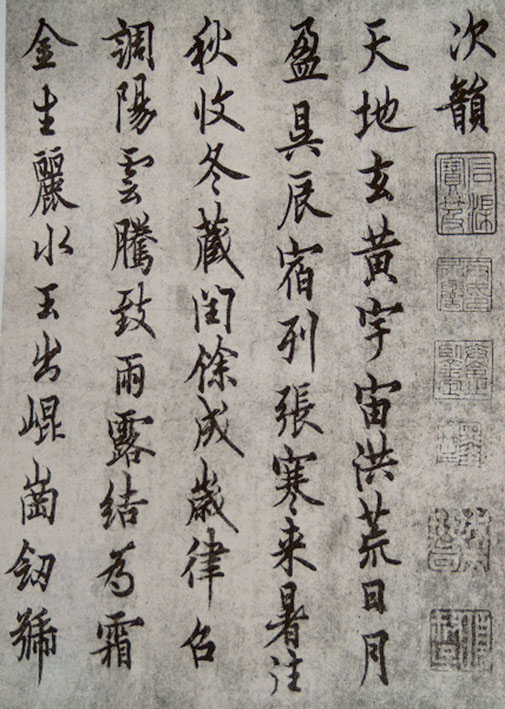 次韻
天地玄黃宇宙洪荒日月
盈昃辰宿列張寒来暑往
秋收冬藏閏餘成歲律召
調陽雲騰致雨露結為霜
金生麗水玉出崐崗劒號